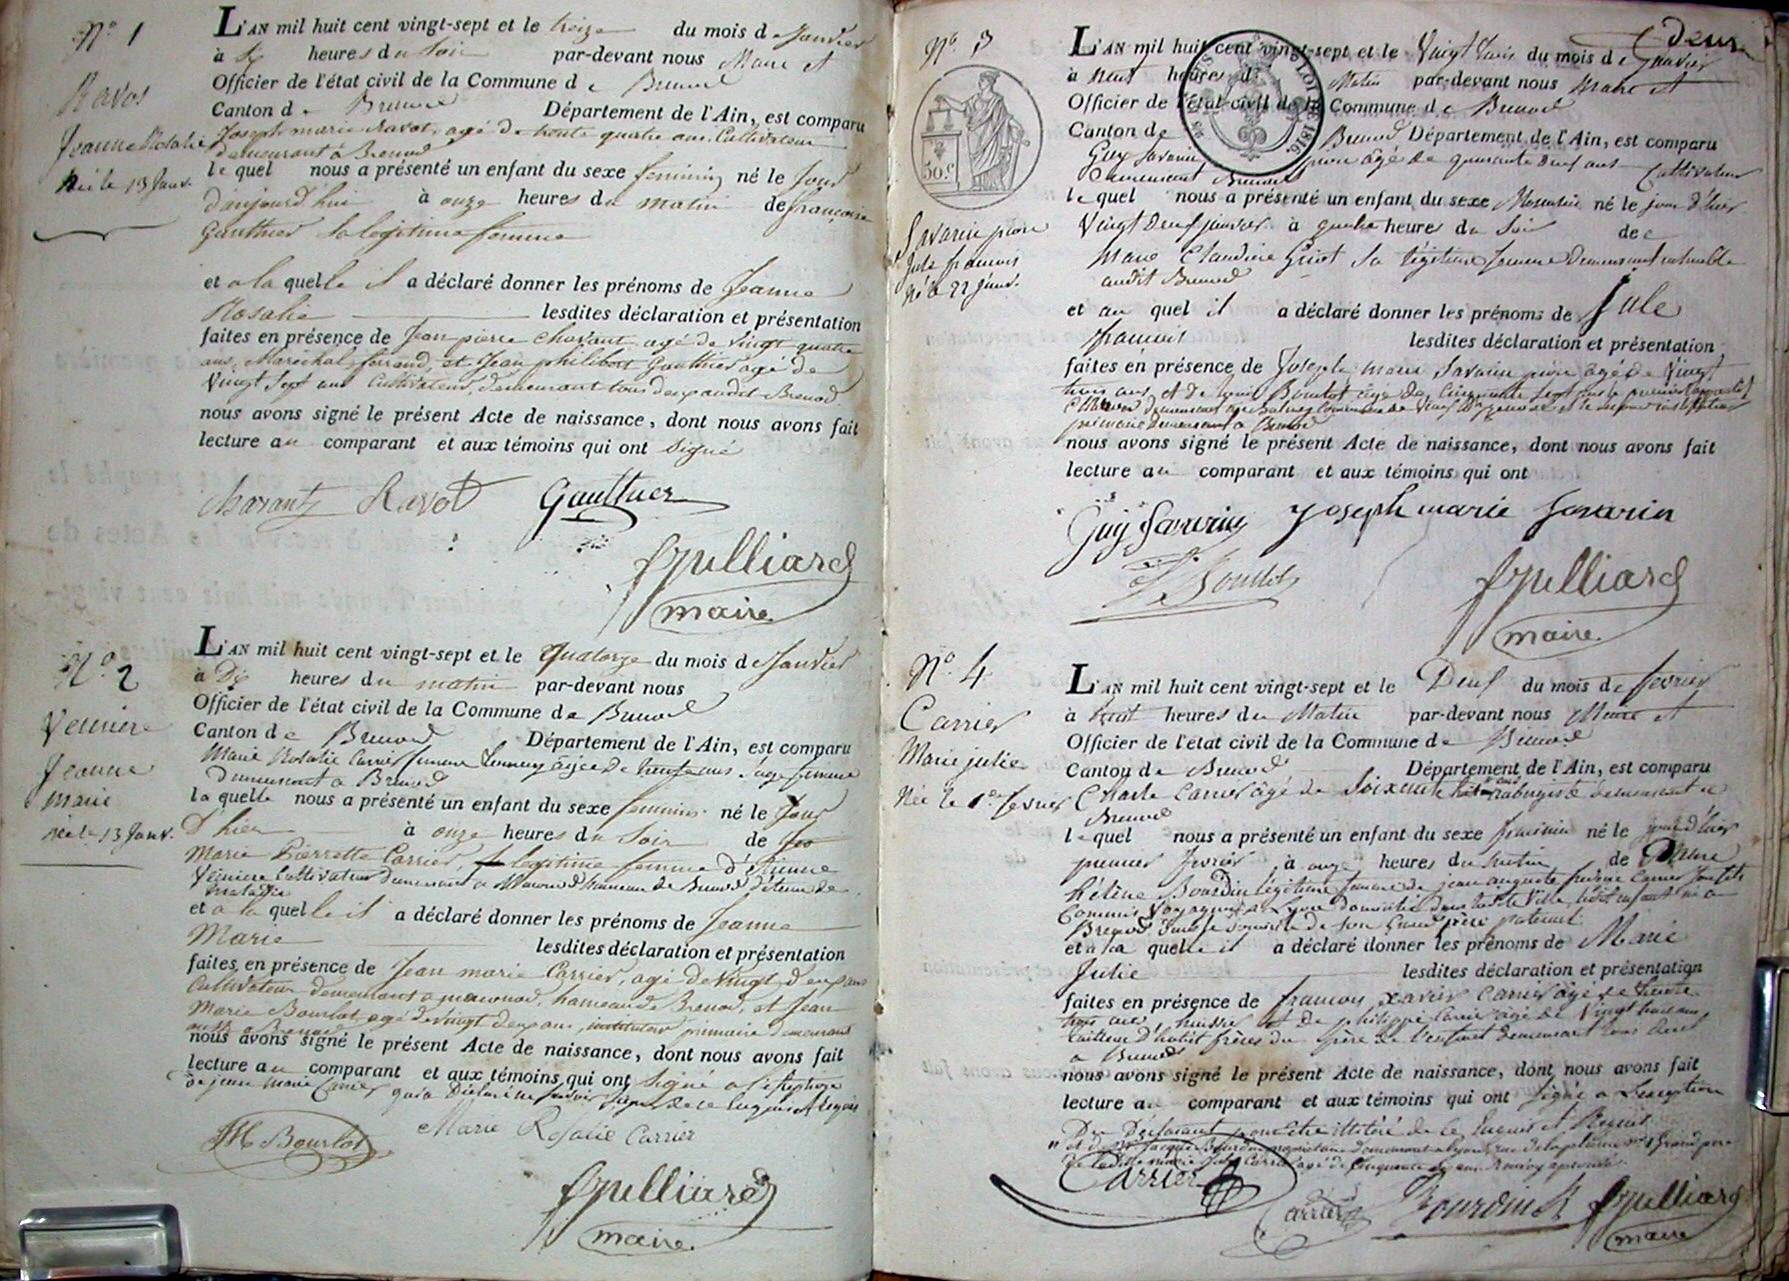 N° 1
Ravot
Jeanne Rosalie
Née le 13 Janv.
L'AN mil huit cent vingt-sept et le treize du mois de Janvier
à Six heures du Soir par-devant nous Maire et
Officier de l'état civil de la Commune de Brenod
Canton de Brenod Département de l'Ain, est comparu
Joseph marie Ravot, agé de trente quatre ans, Cultivateur
demeurant à Brenod
le quel nous a présenté un enfant du sexe feminin né le Jour
d'aujourd'hui à onze heures du matin de françoise
Gauthier Sa legitime femme
et a la quelle il a déclaré donner les prénoms de Jeanne
Rosalie lesdites déclaration et présentation
faites en présence de Jean pierre Chavant agé de vingt quatre
ans, Maréchal ferrand, et Jean philibert Gauthier agé de
Vingt Sept ans Cultivateur, demeurant tous deux audit Brenod
nous avons signé le présent Acte de naissance, dont nous avons fait
lecture au comparant et aux témoins qui ont signé
Chavant Ravot Gauthier
Jquelliard
maire
N° 2
Jeanne
marie
née le 13 Janv.
L'AN mil huit cent vingt-sept et le Quatorze du mois de Janvier
à Dix heures du matin par-devant nous
Officier de l'état civil de la Commune de Brenod
Canton de Brenod Département de l'Ain, est comparu
Marie Rosalie Carrier femme agée de trente ans Sage femme
Demeurant à Brenod
la quelle nous a présenté un enfant du sexe feminin né le Jour
D'hier à onze heures du Soir de
Marie Pierrette Carrier, legitime femme d'Etienne
Cultivateur demeurant a hameau de Brenod détenu de
maladie
et a la quelle il a déclaré donner les prénoms de Jeanne
Marie lesdites déclaration et présentation
faites en présence de Jean marie Carrier, agé de vingt deux ans
Cultivateur demeurant a hameau de Brenod, et Jean
Marie Bourlot agé de vingt deux ans, instituteur primaire demeurant
aussi a Brenod
nous avons signé le présent Acte de naissance, dont nous avons fait
lecture au comparant et aux témoins qui ont Signé a l'exception
de jean marie Carrier qui a Déclaré ne savoir signer de ce enquis et requis
JM Bourlot Marie Rosalie Carrier
Jquelliard
maire
deux
N° 3
50 C.
Savarin
Jule francois
Né le 22 janv.
1816
L'AN mil huit cent vingt-sept et le Vingt trois du mois de Janvier
à neuf heures du Matin par-devant nous Maire et
Officier de l'état civil de la Commune de Brenod
Canton de Brenod Département de l'Ain, est comparu
Guy Savarin âgé de quarante deux ans Cultivateur
Demeurant Brenod
le quel nous a présenté un enfant du sexe Masculin né le jour d'hier
Vingt deux janvier à quatre heures du Soir de
Marie Claudine Guiot Sa légitime femme Demeurant ensemble
audit Brenod
et au quel il a déclaré donner les prénoms de Jule
francois lesdites déclaration et présentation
faites en présence de Joseph marie Savarin âgé de Vingt
trois ans et de Bourlot âgé de Cinquante Sept ans le premier
demeurant et le second instituteur
primaire demeurant a Brenod
nous avons signé le présent Acte de naissance, dont nous avons fait
lecture au comparant et aux témoins qui ont
Guy Savarin Joseph marie Savarin
Bourlot
Jquelliard
maire
N° 4
Carrier
Marie julie
Née le 1er fevrier
L'AN mil huit cent vingt-sept et le Deux du mois de fevrier
à heures du Matin par-devant nous Maire et
Officier de l'état civil de la Commune de Brenod
Canton de Brenod Département de l'Ain, est comparu
Charle Carrier âgé de Soixante huit ans demeurant a
Brenod
le quel nous a présenté un enfant du sexe feminin né le jour d'hier
premier fevrier à onze heures du matin de Marie
hélène Bourdin légitime femme de jean auguste Carrier Son fils
Commis Voyageur a Lyon domicilié dans ladite Ville, ledit enfant né a
Brenod dans le domicile de son Grand père paternel
et a la quelle il a déclaré donner les prénoms de Marie
Julie lesdites déclaration et présentation
faites en présence de francois xavier Carrier âgé de trente
trois ans huissier et de philippe Carrier âgé de Vingt huit ans
tailleur d'habit frères du père de l'enfant demeurant tous deux
a Brenod
nous avons signé le présent Acte de naissance, dont nous avons fait
lecture au comparant et aux témoins qui ont Signé a l'exception
Du Déclarant pour être illitéré de ce enquis et Requis
Carrier Carrier Bourdin Jquelliard
maire